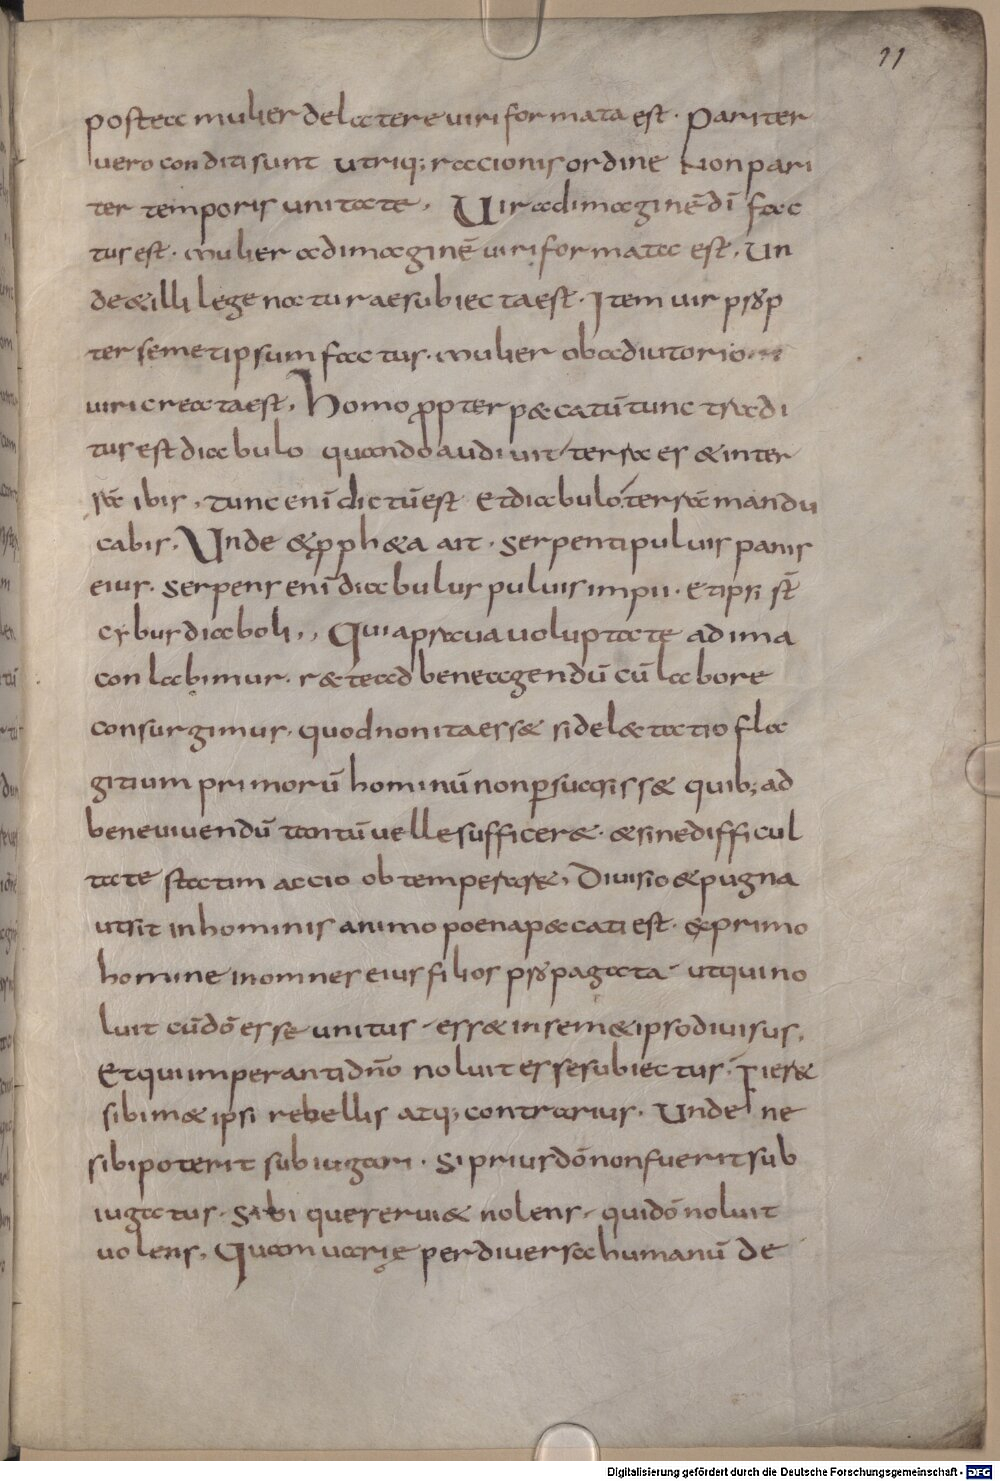 11
postea mulier de latere uiri formata est. Pariter
uero conditi sunt utriq; racionis ordine Non pari
ter temporis unitate. Uir ad imaginē dī fac
tus est. mulier ad imaginē uiri formata est. Un
de & illi lege naturae subiecta est. Item uir prop
ter semetipsum factus. mulier ob adiutorium
uiri creata est. Homo ꝓpter p&catū tunc tradi
tus est diabulo quando audiuit terra es & in ter
rā ibis. tunc enī dictū est Et diabulo terrā mandu
cabis. Unde & ꝓph&a ait. Serpenti puluis panis
eius. Serpens enī diabulus puluis impii. Et ipsi st̄
cybus diaboli., Qui a praua uoluptate ad ima
con labimur. r&te ad bene agendū cū labore
consurgimus. quod non ita ess& si del&tatio fla
gitium primorū hominū non ꝑsuasiss& quib; ad
bene vivendū tantū velle sufficer&. & sine difficul
tate statim accio obtemperar&. Diuisio & pugna
ut sit in hominis animo poena p&cati est. & primo
homine in omnes eius filios propagata ut qui no
luit cū dō esse unitus ess& in sem& ipso diuisus.
Et qui imperanti dn̄o noluit esse subiectus. Fier&
sibim& ipsi rebellis atq; contrarius. Unde ne
sibi poterit subiugari. Si prius dō non fuerit sub
iugatus. Sibi que serui& nolens. qui dō noluit
uolens. Quam uariȩ per diuersa humanū de
Digitalisierung gefördert durch die Deutsche Forschungsgemeinschaft - DFG